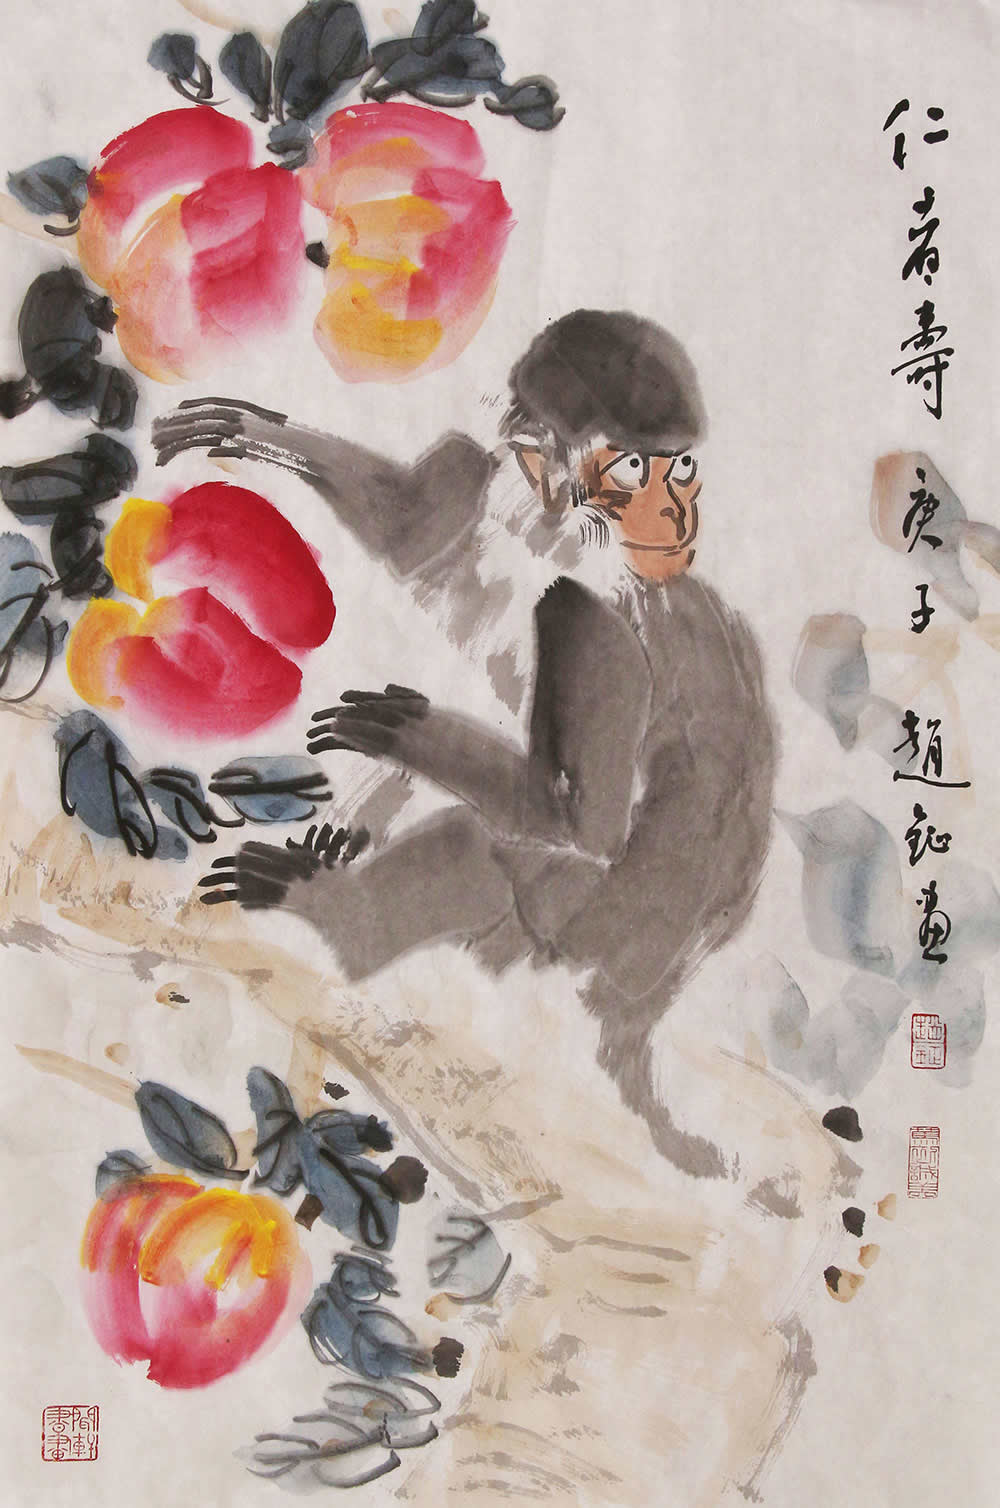 仁者壽 庚子 趙鉦畫